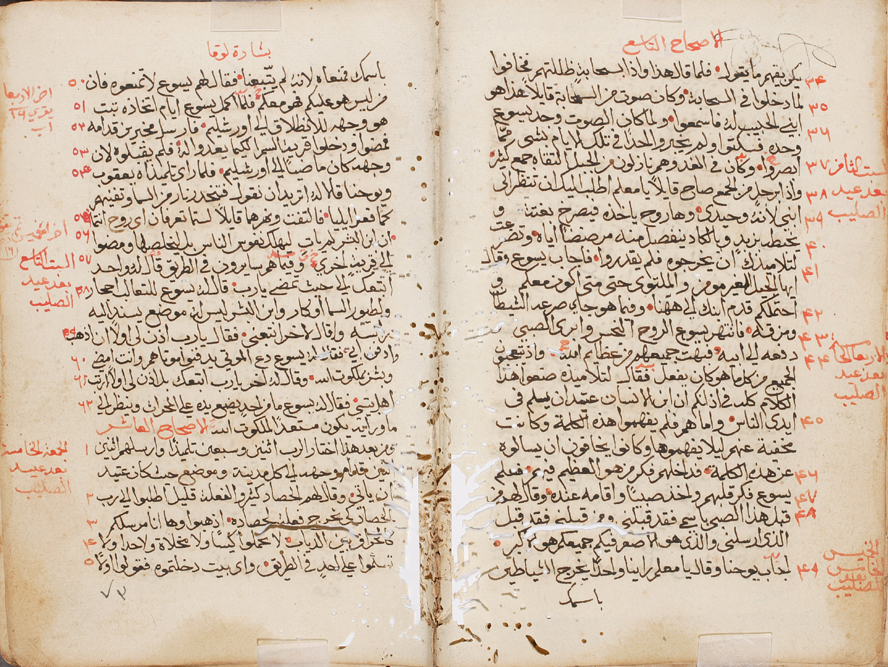 الاصحاح التاسع
يكن يفهم ما يقول فلما قال هذا واذا سحابة ظللتهم فخافوا ٣٤
لما دخلوا في السحابة وكان صوت من السحابة قايلا هذا هو ٣٥
ابني الحبيب له فاسمعوا ولما كان الصوت وجد يسوع ٣٦
وحده فسكتوا ولم يخبروا احدا في تلك الايام بشي مما
ابصروا وكان في الغد وهم نازلون من الجبل التقاه جمع كثير ٣٧
واذا برجل من الجمع صاح قايلا يا معلم اطلب اليك ان تنظر الى ٣٨
ابني لانه وحيدي وها روح ياخذه فيصرخ بغتة و ٣٩
يخبطه يزبد وبالكاد ينفصل منه مرضضا اياه وتضرعت ٤٠
لتلاميذك ان يخرجوه فلم يقدروا فاجاب يسوع وقال ٤١
ايها الجيل الغير مومن والملتوي حتى متى اكون معكم و
احتملكم قدم ابنك الى ههنا وفيما هو جاي صرعه الشيطان ٤٢
ومزقه فانتهر يسوع الروح النجس وابرى الصبي ٤٣
ودفعه لابيه فبهت جميعهم من عظايم الله واذ تعجب ٤٤
الجميع من كل ما هو كان يفعل فقال لتلاميذه ضعوا هذا
الكلام كله في اذانكم ان ابن الانسان عتيد ان يسلم في
ايدي الناس واما هم فلم يفهموا هذه الكلمة وكانت ٤٥
مخفية عنهم ليلا يفهموها وكانوا يخافون ان يسالوه
عن هذه الكلمة فداخلهم فكر من هو العظيم فيهم فعلم ٤٦
يسوع فكر قلبهم واخذ صبيا واقامه عنده وقال لهم من ٤٧
قبل هذا الصبي باسمي فقد قبلني ومن قبلني فقد قبل ٤٨
الذي ارسلني والذي هو الاصغر فيكم جميعكم هو الاكبر
اجاب يوحنا وقال يا معلم راينا واحدا يخرج الشياطين ٤٩
باسمك
السبت الثامن
بعد عيد
الصليب
الاربعا
بعد عيد
الصليب
الخميس
الخامس
بعد
الصليب
بشارة لوقا
باسمك فمنعناه لانه لم يتبعنا فقال لهم يسوع لا تمنعوه فان ٥٠
من ليس هو عليكم فهو معكم فلما اكمل يسوع ايام اتخاذه ثبت ٥١
هو وجهه للانطلاق الى اورشليم فارسل مخبرين قدامه ٥٢
فمضوا ودخلوا قرية السمرا لكيما يعدوا له فلم يقبلوه لان ٥٣
وجهه كان ماضيا الى اورشليم فلما راي تلميذاه يعقوب ٥٤
ويوحنا قالا له اتريد ان نقول فتنحدر نار من السما وتفنيهم
كما فعل ايليا فالتفت ونهرهما قايلا لستما تعرفان اي روح انتما ٥٥
ان ابن البشر لم يات ليهلك نفوس الناس بل ليخلصها ومضوا ٥٦
الى قرية اخرى وفيما هم سايرون في الطريق قال له واحد ٥٧
اتبعك الى حيث تمضي يا رب قال له يسوع للثعالب اجحار ٥٨
ولطيور السما اوكار وابن البشر ليس له موضع يسند اليه
راسه وقال لاخر اتبعني فقال يا رب اذن لي اولا ان اذهب ٥٩
وادفن ابي فقال له يسوع دع الموتى يدفنوا موتاهم وانت امض ٦٠
وبشر بملكوت الله وقال له اخر يا رب اتبعك بل اذن لي اولا ارتب ٦١
اهل بيتي فقال له يسوع ما من احد يضع يده على المحراث وينظر الى ٦٢
ما ورايه يكون مستعدا لملكوت الله الاصحاح العاشر
ومن بعد هذا اختار الرب اثنين وسبعين تلميذا وارسلهم اثنين ١
اثنين قدام وجهه الى كل مدينة وموضع حيث كان عتيد
ان ياتي وقال لهم الحصاد كثير والفعلة قليل اطلبوا الى رب ٢
الحصاد لكي يخرج فعلة لحصاده اذهبوا وها انا مرسلكم ٣
كخراف بين الدياب لا تحملوا كيسا ولا مخلاة ولا حدا ولا ٤
تسلموا على احد في الطريق واي بيت دخلتموه فقولوا اولا ٥
٧٣
اخر الاربعا
السبت التاسع
بعد عيد
الصليب
الجمعة الخامسة
بعد عيد
الصليب